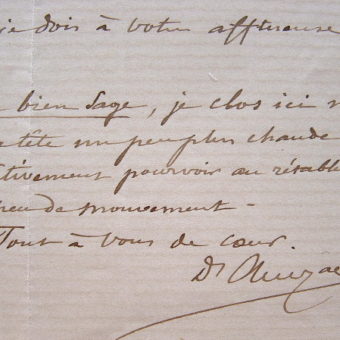 je dois à votre affreuse
bien sage, je clos ici
tête un peu plus chaude
tivement pourvoir au rétabl
peu de mouvement -
Tout à vous de cœur.
Dr